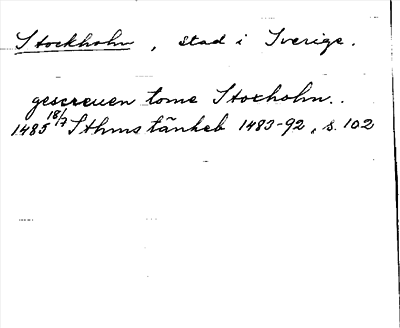 Stockholm, stad i Sverige.
gescreuen tome Stoxholm..
1485 18/7 Sthms tänkeb 1483-92, s. 102